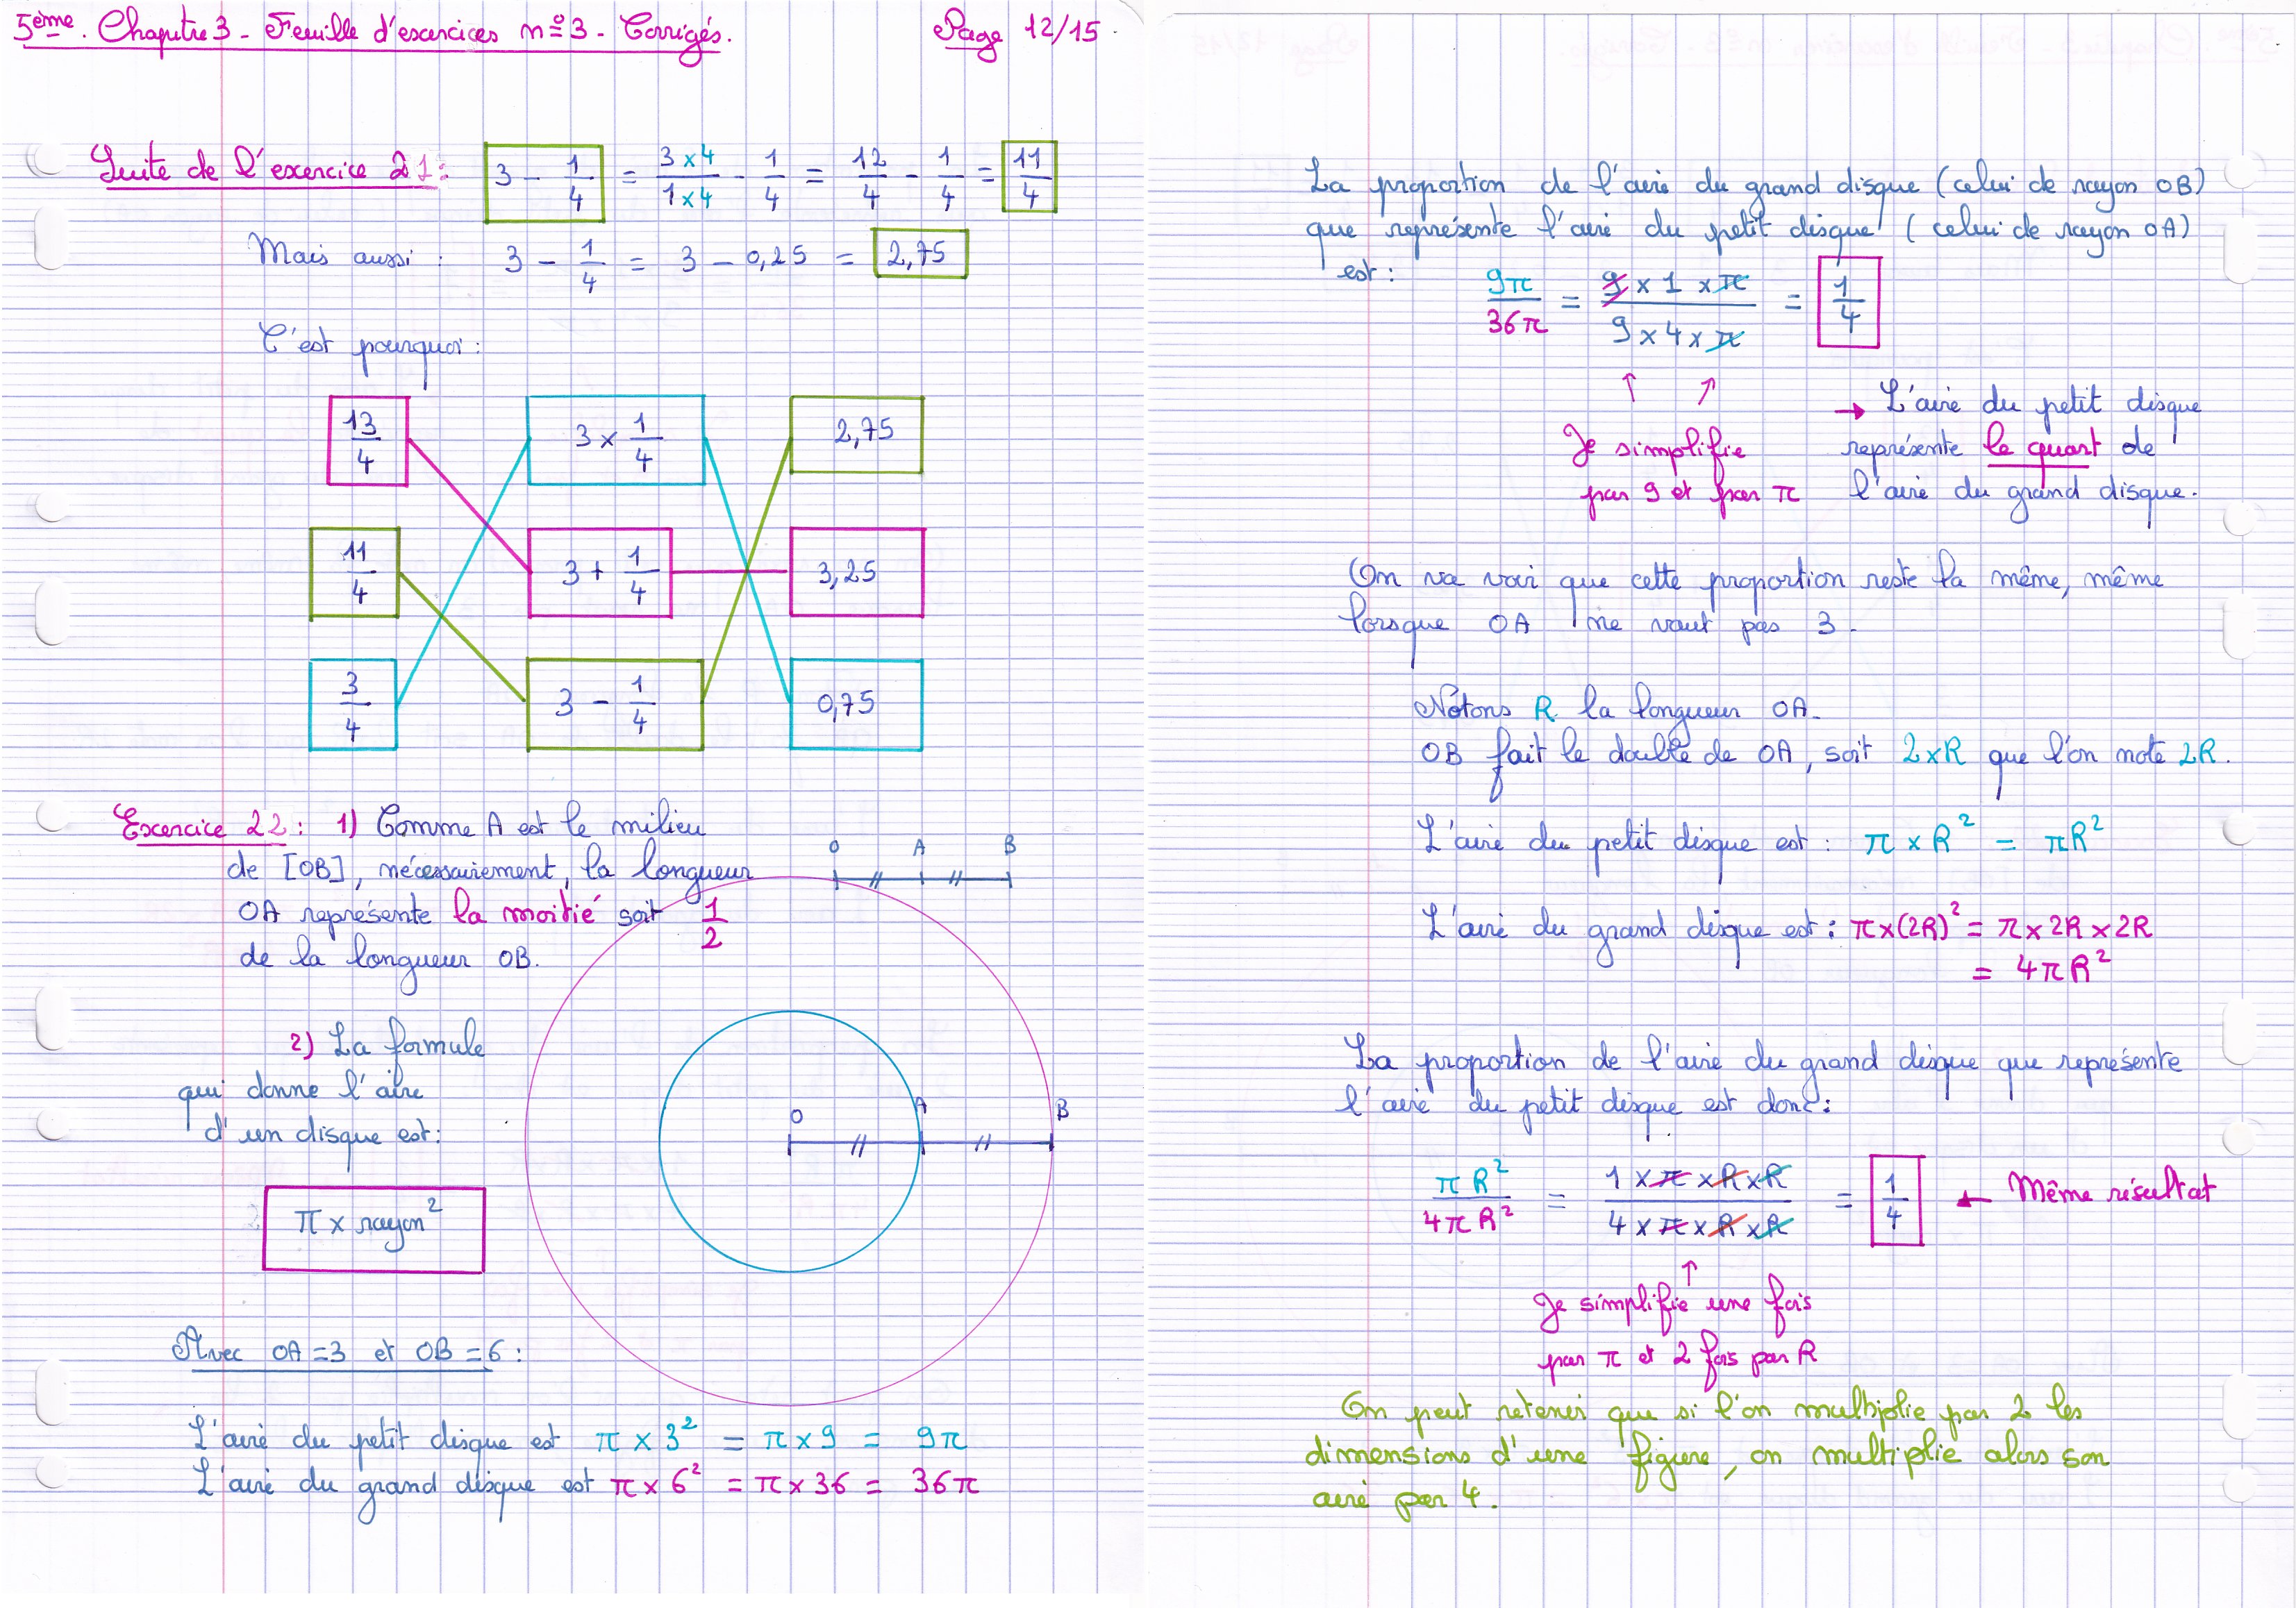 5ème. Chapitre 3 - Feuille d'exercices n°3 - Corrigés. Page 12/15.
Suite de l'exercice 21 : 3 - 1/4 = 3 x 4 / 1 x 4 - 1/4 = 12/4 - 1/4 = 11/4
Mais aussi : 3 - 1/4 = 3 - 0,25 = 2,75
C'est pourquoi :
13/4 3 x 1/4 2,75
11/4 3 + 1/4 3,25
3/4 3 - 1/4 0,75
Exercice 22 : 1) Comme A est le milieu
de [OB], nécessairement, la longueur
OA représente la moitié soit 1/2
de la longueur OB.
O A B
2) La formule
qui donne l'aire
d'un disque est :
π x rayon²
O A B
Avec OA = 3 et OB = 6 :
L'aire du petit disque est π x 3² = π x 9 = 9π
L'aire du grand disque est π x 6² = π x 36 = 36π
La proportion de l'aire du grand disque (celui de rayon OB)
que représente l'aire du petit disque (celui de rayon OA)
est :
9π/36π = 9 x 1 x π / 9 x 4 x π = 1/4
↑ ↑
Je simplifie
par 9 et par π
→ L'aire du petit disque
représente le quart de
l'aire du grand disque.
On va voir que cette proportion reste la même, même
lorsque OA ne vaut pas 3.
Notons R la longueur OA.
OB fait le double de OA, soit 2xR que l'on note 2R.
L'aire du petit disque est : π x R² = πR²
L'aire du grand disque est : π x (2R)² = π x 2R x 2R
= 4πR²
La proportion de l'aire du grand disque que représente
l'aire du petit disque est donc :
πR²/4πR² = 1 x π x R x R / 4 x π x R x R = 1/4 ← Même résultat
↑
Je simplifie une fois
par π et 2 fois par R
On peut retenir que si l'on multiplie par 2 les
dimensions d'une figure, on multiplie alors son
aire par 4.